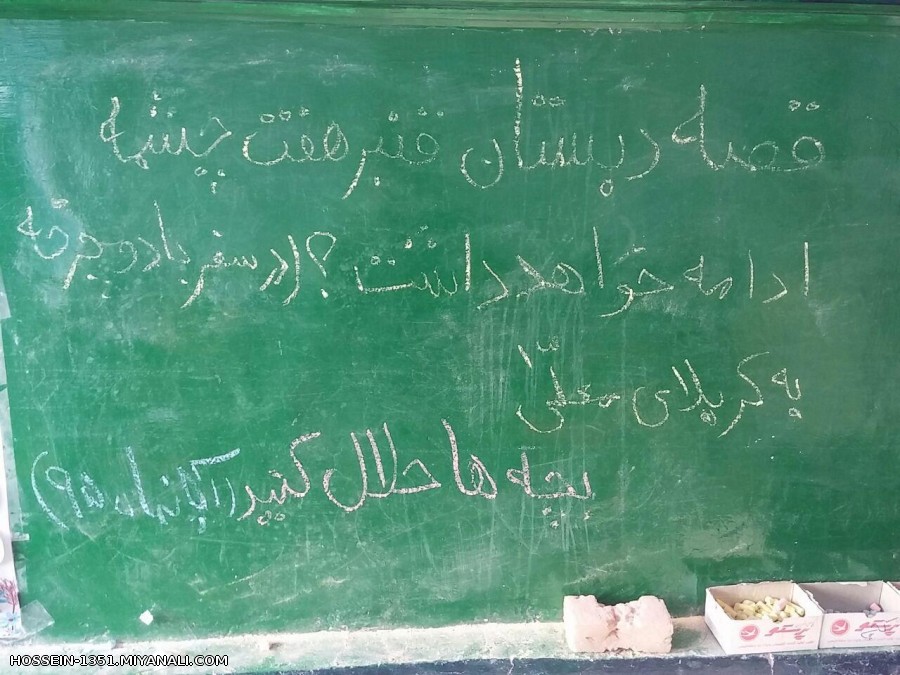 قصه دبستان قنبر هفت چشمه
ادامه خواهد داشت ؟! در سفر با دوچرخه
به کربلای معلّی
بچه ها حلال کنید (آبانماه ۹۵)
HOSSEIN-1351.MIYANALI.COM